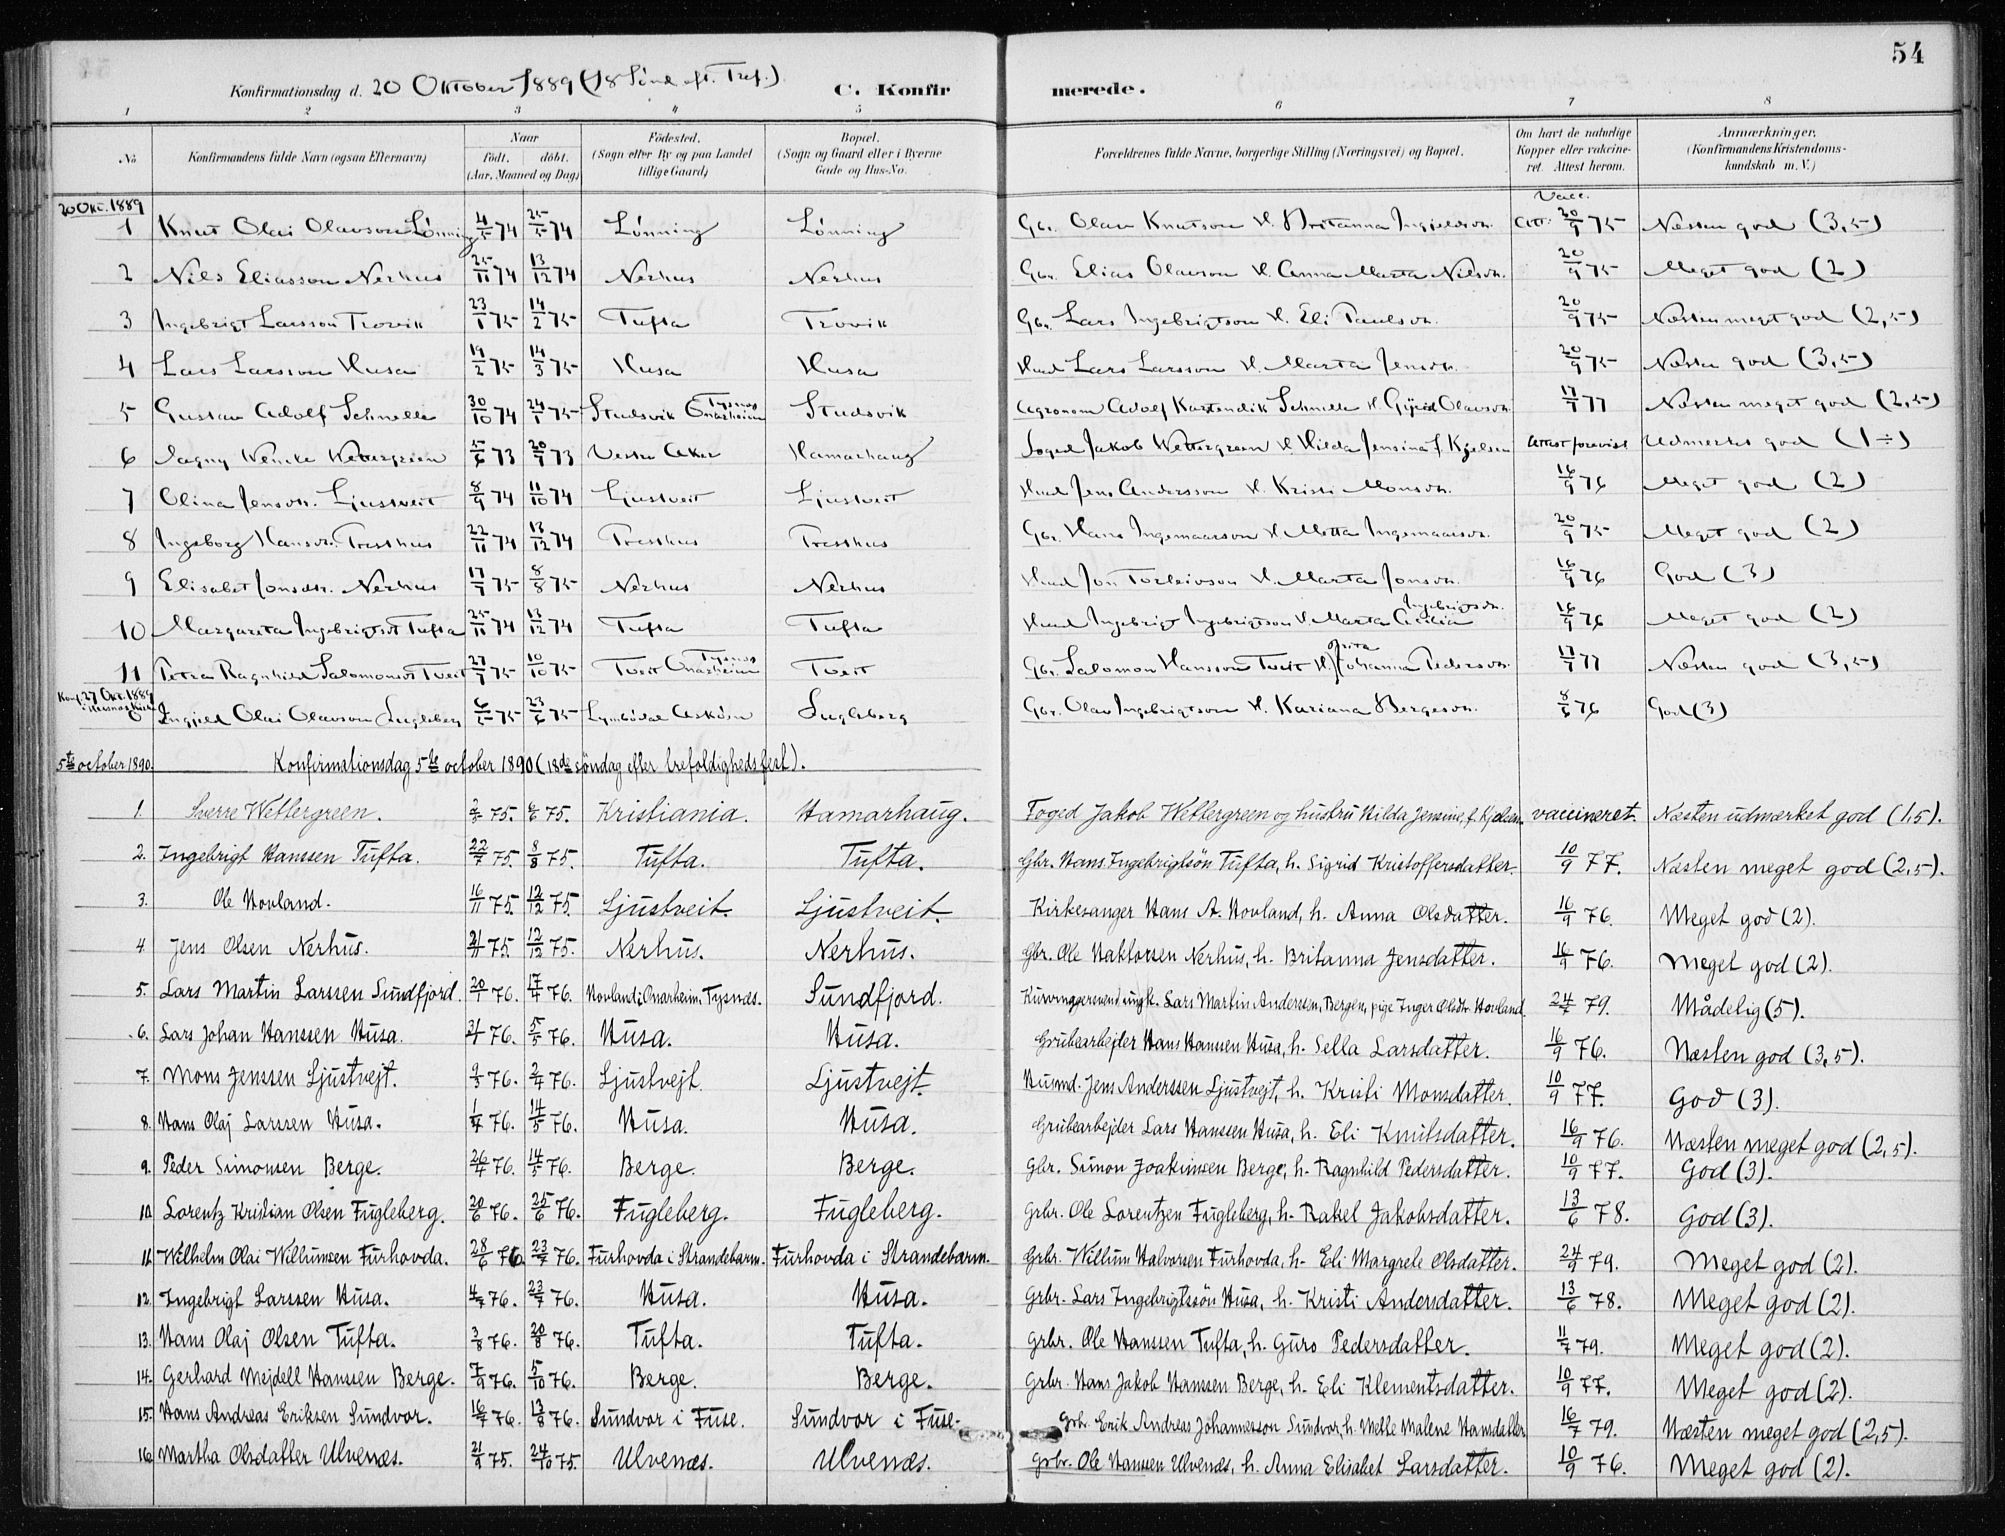 54
Konfirmationsdag d. 20 Oktober 1889 (18 Sönd. eft. Tref.) C. Konfirmerede.
1 2 3 4 5 6 7 8
No. Konfirmandens fulde Navn (ogsaa Efternavn) Naar födt. döbt. (Aar, Maaned og Dag) Födested. (Sogn eller By og paa Landet tillige Gaard) Bopæl. (Sogn og Gaard eller i Byerne Gade og Hus-No. Forældrenes fulde Navne, borgerlige Stilling (Næringsvei) og Bopæl. Om havt de naturlige Kopper eller vaccineret. Attest herom. Anmærkninger. (Konfirmandens Kristendomskundskab m. V.)
20 Okt. 1889 Vacc.
1 Knut Olai Olavson Lønning 4/5 74 25/5 74 Lønning Lønning Gbr. Olav Knutson H. Britanna Ingjeldsdr. Att: 20/9 75 Næsten god (3,5)
2 Nils Eliasson Nerhus 25/11 74 13/12 74 Nerhus Nerhus Gbr. Elias Olavson H. Anna Marta Nilsdr. 20/9 75 Meget god (2)
3 Ingebrigt Larsson Trovik 23/1 75 14/2 75 Tufta Trovik Gbr. Lars Ingebrigtson H. Eli Paulsdr. 20/9 75 Næsten meget god (2,5)
4 Lars Larsson Husa 19/2 75 14/3 75 Husa Husa Hmd Lars Larsson H. Marta Jensdr. 20/9 75 Næsten god (3,5)
5 Gustav Adolf Schnelle 30/10 74 24/1 75 Studsvik Tysnes Onarheim Studsvik Agronom Adolf Karstendik Schnelle H Gjerid Olavsdr. 17/9 77 Næsten meget god (2,5)
6 Dagny Wencke Wettergreen 5/6 73 20/9 73 Vestre Aker Hamarhaug Foged Jakob Wettergreen H Hilda Jensina f. Kjelsen Attest forevist Udmerket god (1÷)
7 Olina Jensdr. Ljustveit 8/9 74 11/10 74 Ljustveit Ljustveit Hmd Jens Andersson H. Kristi Monsdr. 16/9 76 Meget god (2)
8 Ingeborg Hansdr. Tresthus 22/11 74 13/12 74 Tresthus Tresthus Gbr. Hans Ingemaarson H Metta Ingemaarsdr. 20/9 75 Meget god (2)
9 Elisabet Jonsdr. Nerhus 17/7 75 8/8 75 Nerhus Nerhus Hmd Jon Torleivson H. Marta Jonsdr. 16/9 76 God (3)
10 Margareta Ingebrigtsdr Tufta 25/11 74 13/12 74 Tufta Tufta Hmd Ingebrigt Ingebrigtson H. Marta Cecilia Ingebrigtsdr. 16/9 76 Meget god (2)
11 Petra Ragnhild Salomonsdr Tveit 27/7 75 10/10 75 Tveit Tysnes Onarheim Tveit Gbr. Salomon Hansson Tveit H. Brita Johanna Pedersdr. 17/9 77 Næsten god (3,5)
Konf. 27 Okt. 1889 Ingjeld Olai Olavson Fugleberg 6/5 75 23/6 75 Fugleberg Gbr. Olav Ingebrigtson H. Kariana Bergesdr. 8/6 76 God (3)
5te october 1890. Konfirmationsdag 5te october 1890 (18de söndag efter trefoldighedsfest).
1. Sverre Wettergreen. 2/3 75. 6/6 75. Kristiania. Hamarhaug. Foged Jakob Wettergreen og hustru Hilda Jensine, f. Kjelsen vaccineret. Næsten udmærket god (1,5).
2. Ingebrigt Hanssen Tufta. 22/7 75. 8/8 75. Tufta. Tufta. Gbr. Hans Ingebrigtsön Tufta, h. Sigrid Kristoffersdatter. 10/9 77. Næsten meget god (2,5).
3. Ole Hovland. 16/11 75. 12/12 75. Ljustveit. Ljustveit. Kirkesanger Hans A. Hovland, h. Anna Olsdatter. 16/9 76. Meget god (2).
4 Jens Olsen Nerhus. 21/11 75. 12/12 75. Nerhus. Nerhus. Gbr. Ole Haktorsen Nerhus, h. Britanna Jensdatter. 16/9 76. Meget god (2).
5. Lars Martin Larssen Sundfjord. 20/1 76. 17/4 76. Hovland i Onarheim, Tysnæs. Sundfjord. Kurvmagersvend ungk. Lars Martin Anderssen, Bergen, pige Inger Olsdtr. Hovland. 24/7 79. Mådelig (5).
6. Lars Johan Hanssen Husa. 31/1 76. 5/5 76. Husa. Husa. Grubearbejder Hans Hanssen Husa, h. Sella Larsdatter. 16/9 76. Næsten god (3,5).
7. Mons Jenssen Ljustvejt. 9/3 76. 2/4 76. Ljustvejt. Ljustvejt. Husmd. Jens Anderssen Ljustvejt, h. Kristi Monsdatter. 10/9 77. God (3).
8. Hans Olaj Larssen Husa. 1/4 76. 14/5 76. Husa. Husa. Grubearbejder Lars Hanssen Husa, h. Eli Knutsdatter. 16/9 76. Næsten meget god (2,5).
9. Peder Simonsen Berge. 26/4 76. 14/5 76. Berge. Berge. Gbr. Simon Joakimsen Berge, h. Ragnhild Pedersdatter. 10/9 77. God (3).
10 Lorentz Kristian Olsen Fugleberg. 20/6 76. 25/6 76. Fugleberg. Fugleberg. Grbr. Ole Lorentzen Fugleberg, h. Rakel Jakobsdatter. 13/6 78. God (3).
11. Wilhelm Olai Willumsen Furhovda. 28/6 76. 23/7 76. Furhovda i Strandebarm. Furhovda i Strandebarm. Grbr. Willum Halvorsen Furhovda, h. Eli Margrete Olsdatter. 24/9 79. Meget god (2).
12. Ingebrigt Larssen Husa. 4/7 76. 23/7 76. Husa. Husa. Grbr. Lars Ingebrigtssön Husa, h. Kristi Andersdatter. 13/6 78. Meget god (2).
13. Hans Olaj Olsen Tufta. 3/8 76. 20/8 76. Tufta. Tufta. Grbr. Ole Hanssen Tufta, h. Guro Pedersdatter. 11/7 79. Meget god (2).
14. Gerhard Mejdell Hanssen Berge. 7/9 76. 5/10 76. Berge. Berge. Grbr. Hans Jakob Hanssen Berge, h. Eli Klementsdatter. 10/9 77. Meget god (2).
15. Hans Andreas Eriksen Sundvor. 16/7 76. 13/8 76. Sundvor i Fuse. Sundvor i Fuse. Grbr. Erik Andreas Johannesson Sundvor, h. Mette Malene Hansdatter. 16/7 79. Næsten meget god (2,5).
16. Martha Olsdatter Ulvenæs. 21/9 75. 24/10 75. Ulvenæs. Ulvenæs. Grbr. Ole Hanssen Ulvenæs, h. Anna Elisabet Larsdatter. 10/9 76. Meget god (2).